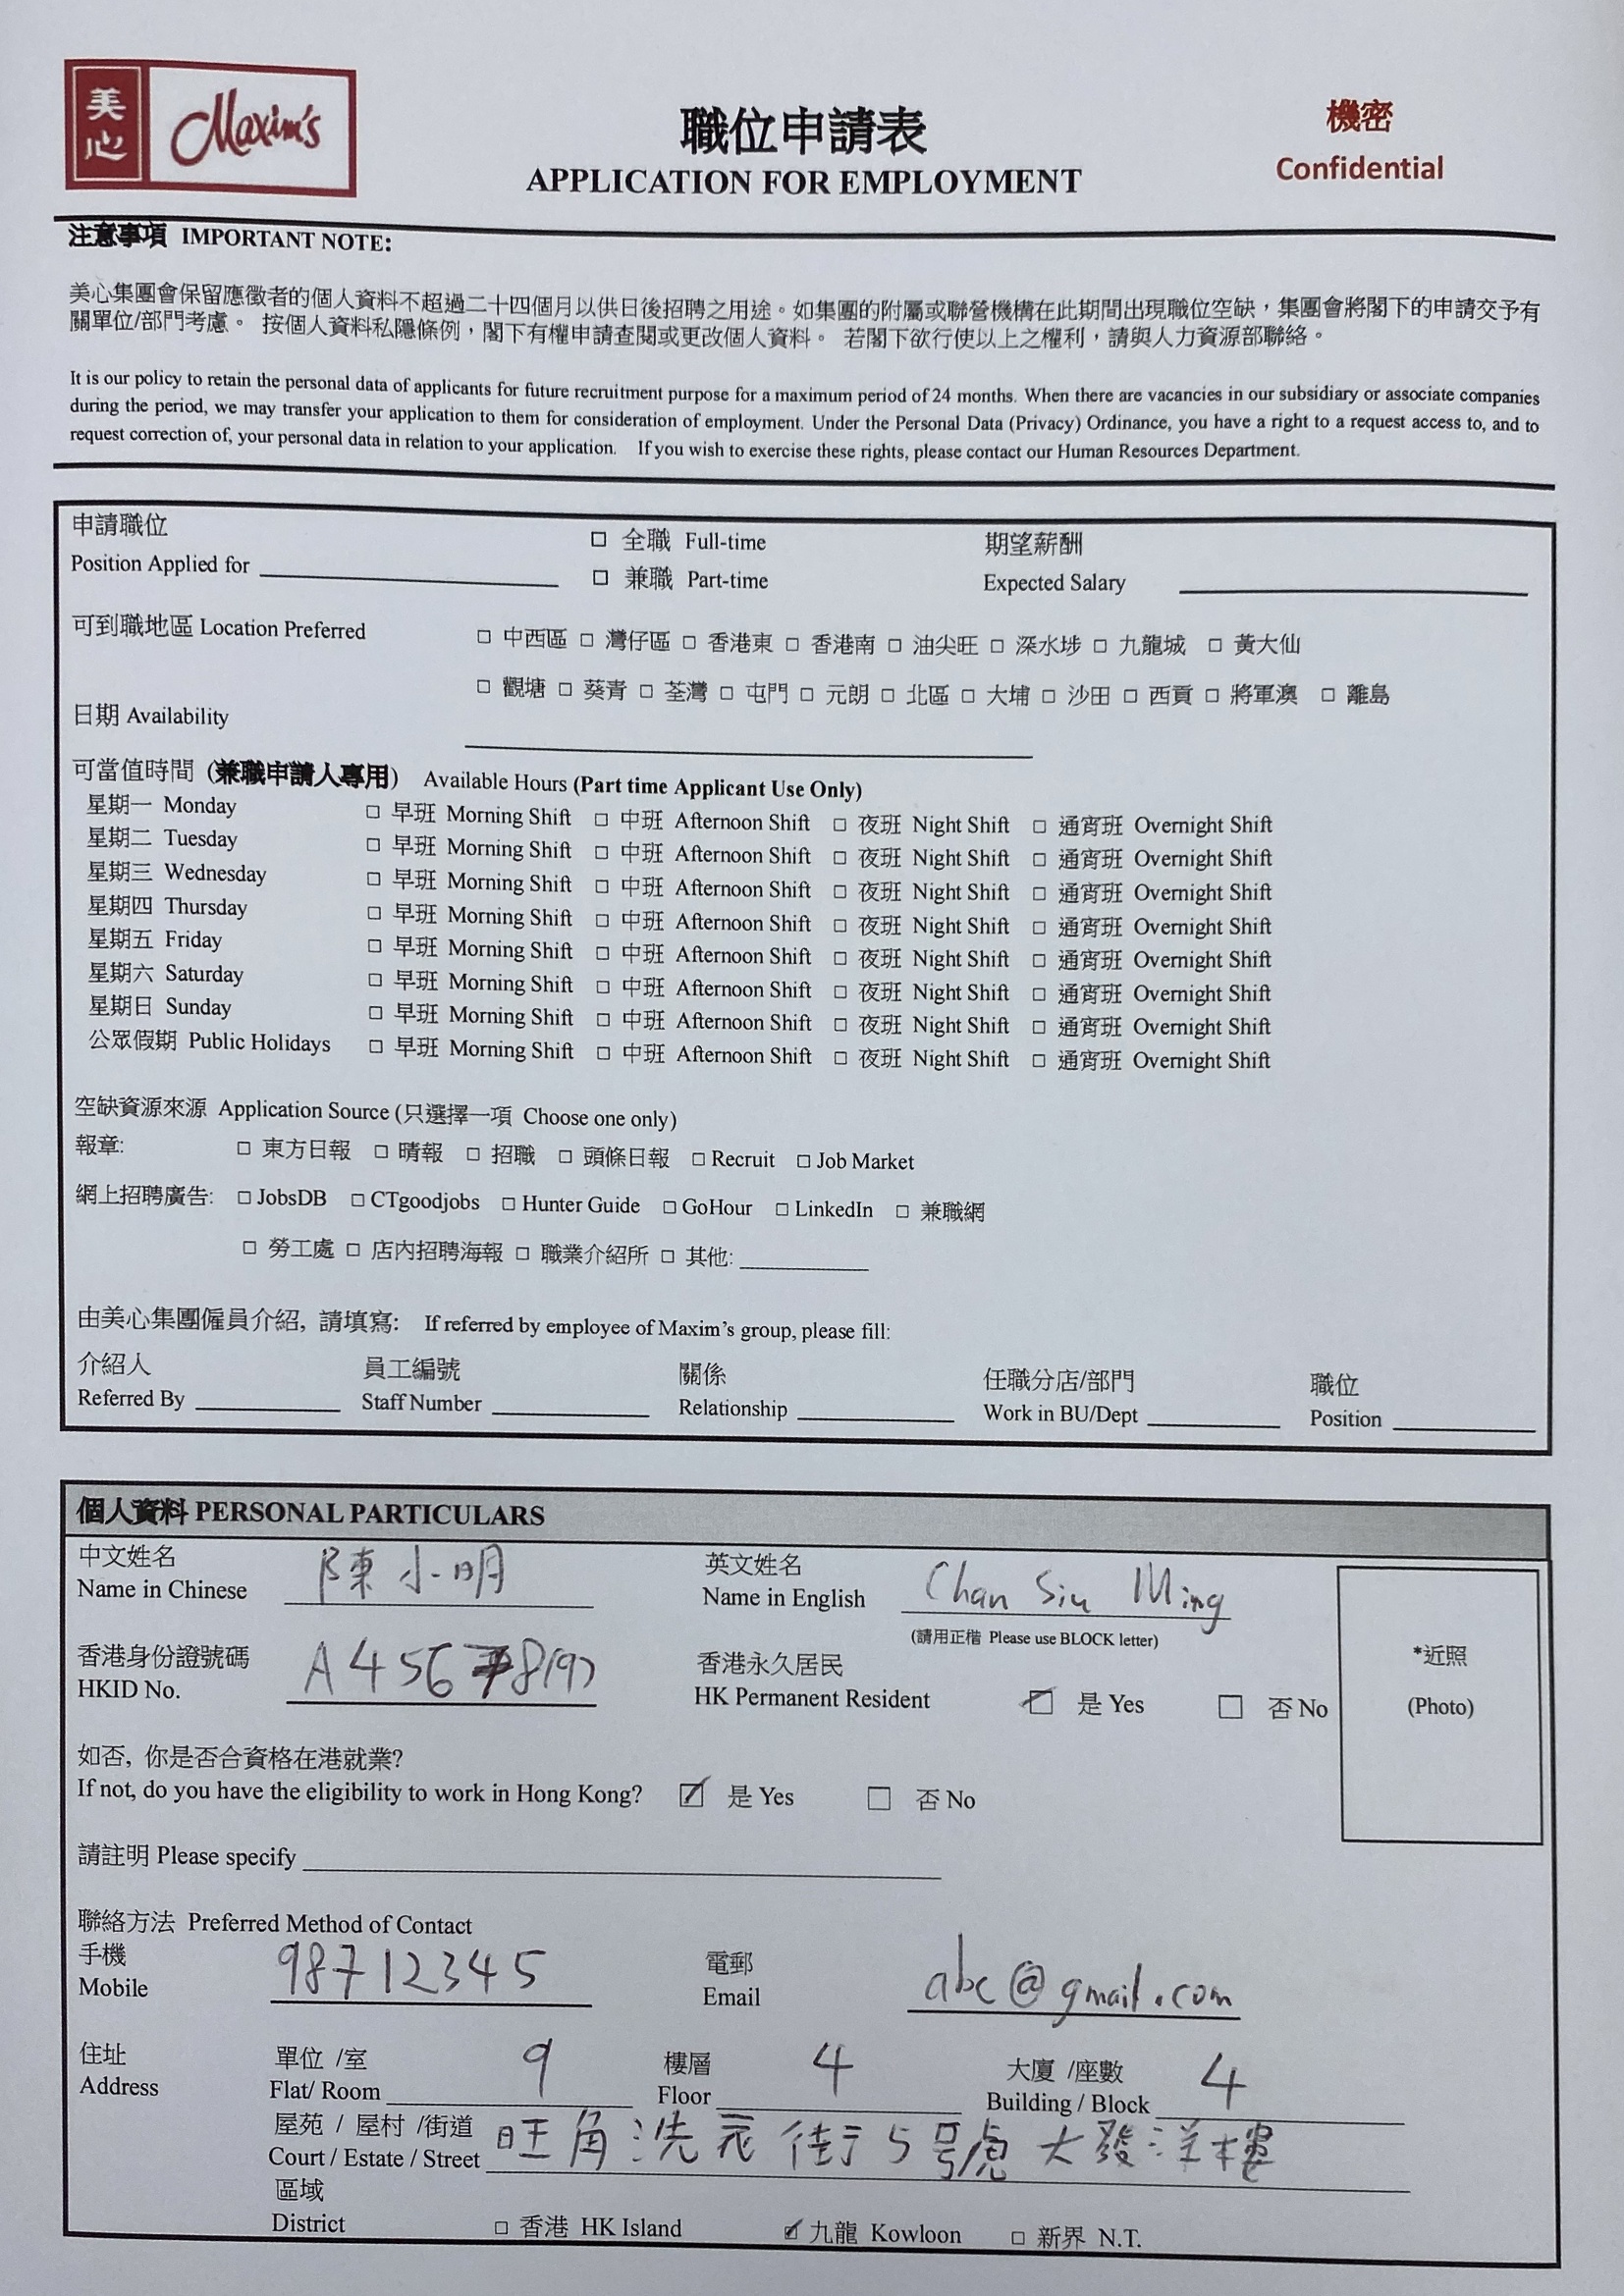 美心 Maxim's
職位申請表
APPLICATION FOR EMPLOYMENT
機密
Confidential
注意事項 IMPORTANT NOTE:
美心集團會保留應徵者的個人資料不超過二十四個月以供日後招聘之用途。如集團的附屬或聯營機構在此期間出現職位空缺，集團會將閣下的申請交予有
關單位/部門考慮。 按個人資料私隱條例，閣下有權申請查閱或更改個人資料。 若閣下欲行使以上之權利，請與人力資源部聯絡。
It is our policy to retain the personal data of applicants for future recruitment purpose for a maximum period of 24 months. When there are vacancies in our subsidiary or associate companies
during the period, we may transfer your application to them for consideration of employment. Under the Personal Data (Privacy) Ordinance, you have a right to a request access to, and to
request correction of, your personal data in relation to your application. If you wish to exercise these rights, please contact our Human Resources Department.
申請職位 □ 全職 Full-time 期望薪酬
Position Applied for □ 兼職 Part-time Expected Salary
可到職地區 Location Preferred □ 中西區 □ 灣仔區 □ 香港東 □ 香港南 □ 油尖旺 □ 深水埗 □ 九龍城 □ 黃大仙
□ 觀塘 □ 葵青 □ 荃灣 □ 屯門 □ 元朗 □ 北區 □ 大埔 □ 沙田 □ 西貢 □ 將軍澳 □ 離島
日期 Availability
可當值時間 (兼職申請人專用) Available Hours (Part time Applicant Use Only)
星期一 Monday □ 早班 Morning Shift □ 中班 Afternoon Shift □ 夜班 Night Shift □ 通宵班 Overnight Shift
星期二 Tuesday □ 早班 Morning Shift □ 中班 Afternoon Shift □ 夜班 Night Shift □ 通宵班 Overnight Shift
星期三 Wednesday □ 早班 Morning Shift □ 中班 Afternoon Shift □ 夜班 Night Shift □ 通宵班 Overnight Shift
星期四 Thursday □ 早班 Morning Shift □ 中班 Afternoon Shift □ 夜班 Night Shift □ 通宵班 Overnight Shift
星期五 Friday □ 早班 Morning Shift □ 中班 Afternoon Shift □ 夜班 Night Shift □ 通宵班 Overnight Shift
星期六 Saturday □ 早班 Morning Shift □ 中班 Afternoon Shift □ 夜班 Night Shift □ 通宵班 Overnight Shift
星期日 Sunday □ 早班 Morning Shift □ 中班 Afternoon Shift □ 夜班 Night Shift □ 通宵班 Overnight Shift
公眾假期 Public Holidays □ 早班 Morning Shift □ 中班 Afternoon Shift □ 夜班 Night Shift □ 通宵班 Overnight Shift
空缺資源來源 Application Source (只選擇一項 Choose one only)
報章: □ 東方日報 □ 晴報 □ 招職 □ 頭條日報 □ Recruit □ Job Market
網上招聘廣告: □ JobsDB □ CTgoodjobs □ Hunter Guide □ GoHour □ LinkedIn □ 兼職網
□ 勞工處 □ 店內招聘海報 □ 職業介紹所 □ 其他:
由美心集團僱員介紹, 請填寫: If referred by employee of Maxim's group, please fill:
介紹人 員工編號 關係 任職分店/部門 職位
Referred By Staff Number Relationship Work in BU/Dept Position
個人資料 PERSONAL PARTICULARS
中文姓名 陳小明 英文姓名
Name in Chinese Name in English Chan Siu Ming
(請用正楷 Please use BLOCK letter)
香港身份證號碼 A45678(9) 香港永久居民
HKID No. HK Permanent Resident ☑ 是 Yes □ 否 No
*近照
(Photo)
如否, 你是否合資格在港就業?
If not, do you have the eligibility to work in Hong Kong? ☑ 是 Yes □ 否 No
請註明 Please specify
聯絡方法 Preferred Method of Contact
手機 98712345 電郵
Mobile Email abc@gmail.com
住址 單位 /室 9 樓層 4 大廈 /座數 4
Address Flat/ Room Floor Building / Block
屋苑 / 屋村 /街道 旺角洗衣街5號大發洋樓
Court / Estate / Street
區域
District □ 香港 HK Island ☑ 九龍 Kowloon □ 新界 N.T.